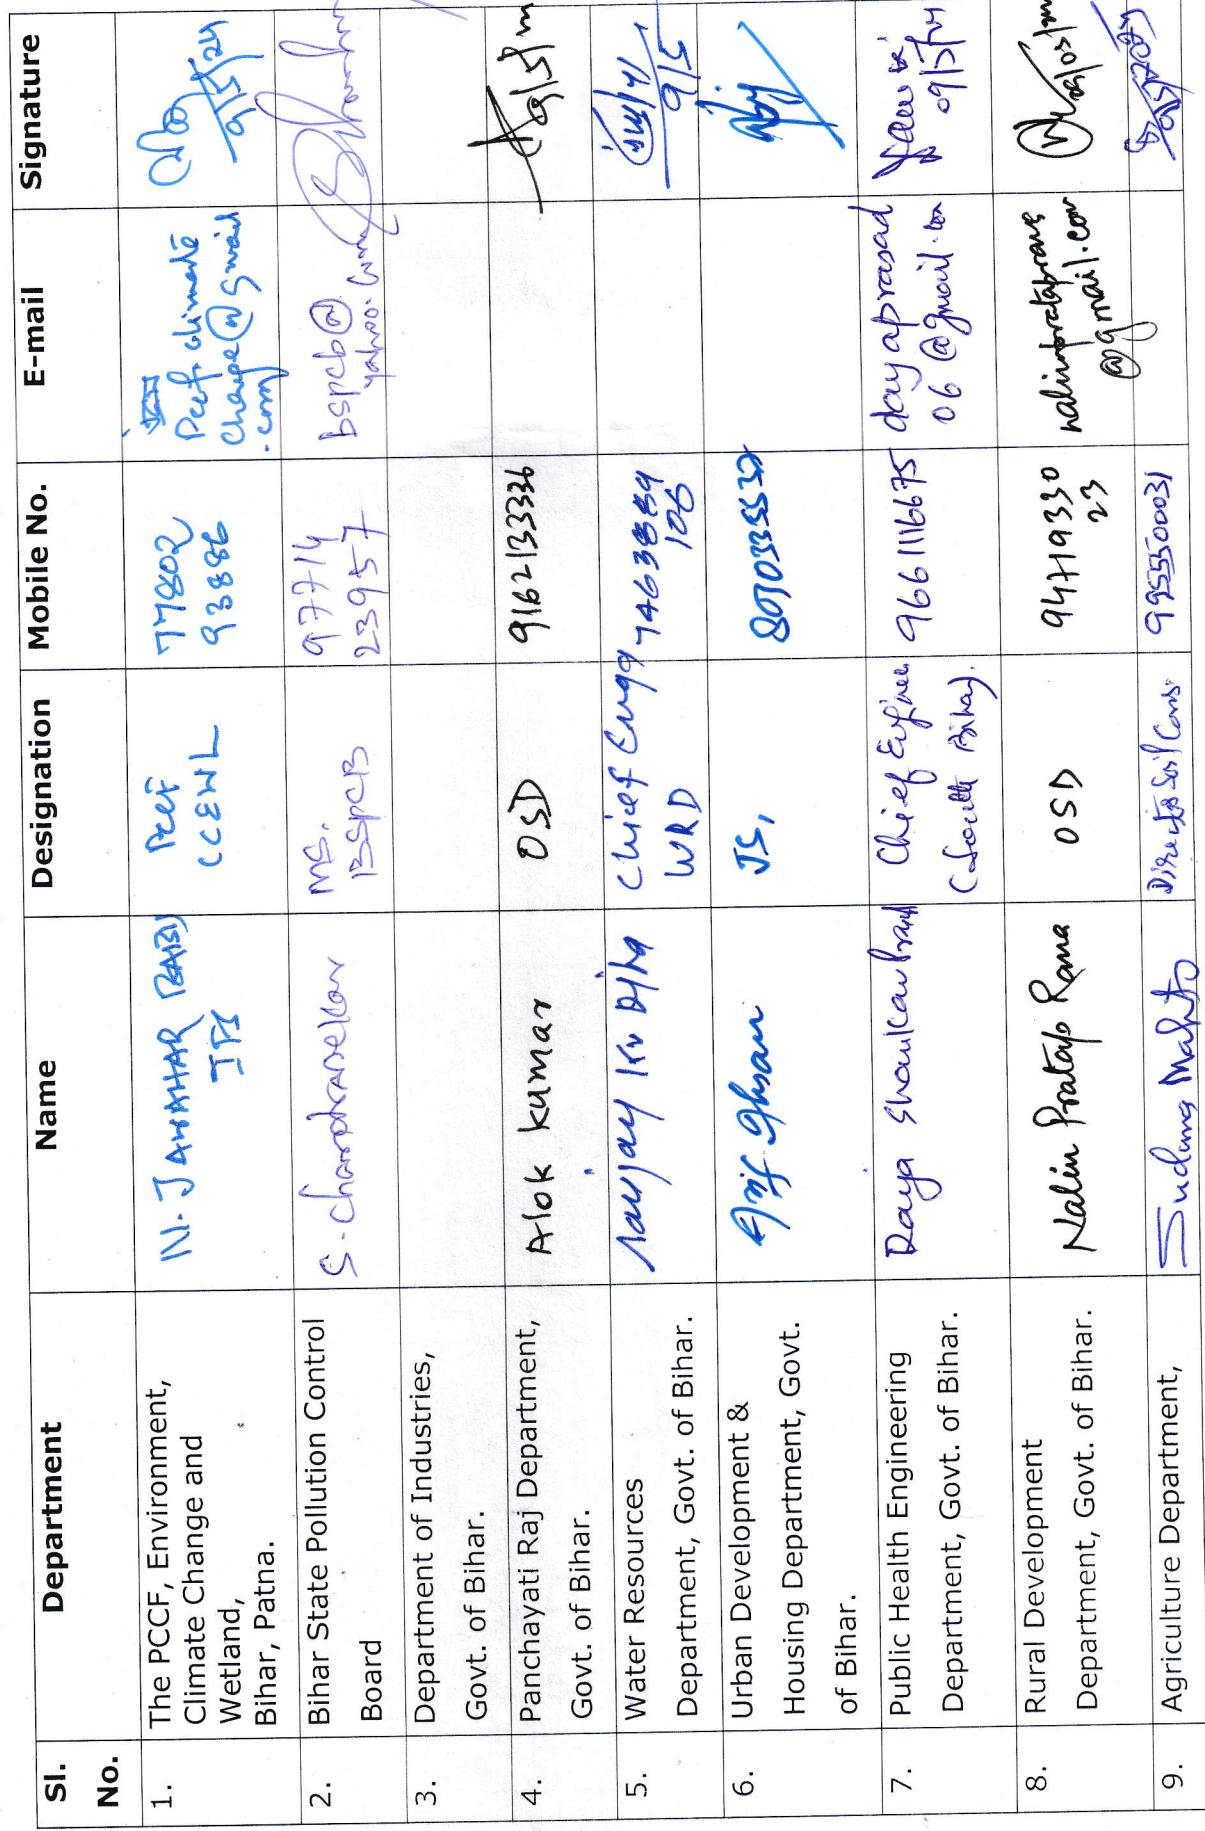 Sl. No.
Department
Name
Designation
Mobile No.
E-mail
Signature
1.
The PCCF, Environment,
Climate Change and
Wetland,
Bihar, Patna.
N. JAWAHAR BABU
IFS
PCCF
CCEWL
77802
93886
Pccf.climate
change@gmail
.com
9/5/24
2.
Bihar State Pollution Control
Board
S. Chandrasekar
MS.
BSPCB
97714
23957
bspcb@
yahoo.com
3.
Department of Industries,
Govt. of Bihar.
4.
Panchayati Raj Department,
Govt. of Bihar.
Alok kumar
OSD
9162133336
5.
Water Resources
Department, Govt. of Bihar.
Kr Ojha
Chief Engg
WRD
7463889
106
9/5
6.
Urban Development &
Housing Department, Govt.
of Bihar.
JS,
7.
Public Health Engineering
Department, Govt. of Bihar.
Daya Shankar
Chief Engineer
(South Bihar).
9661116675
dayaprasad
06@gmail.com
8.
Rural Development
Department, Govt. of Bihar.
Nalin Pratap Rana
OSD
94719330
23
nalinprataprana
@gmail.com
9.
Agriculture Department,
Sudama Mahto
Director Soil Cons.
9955500031